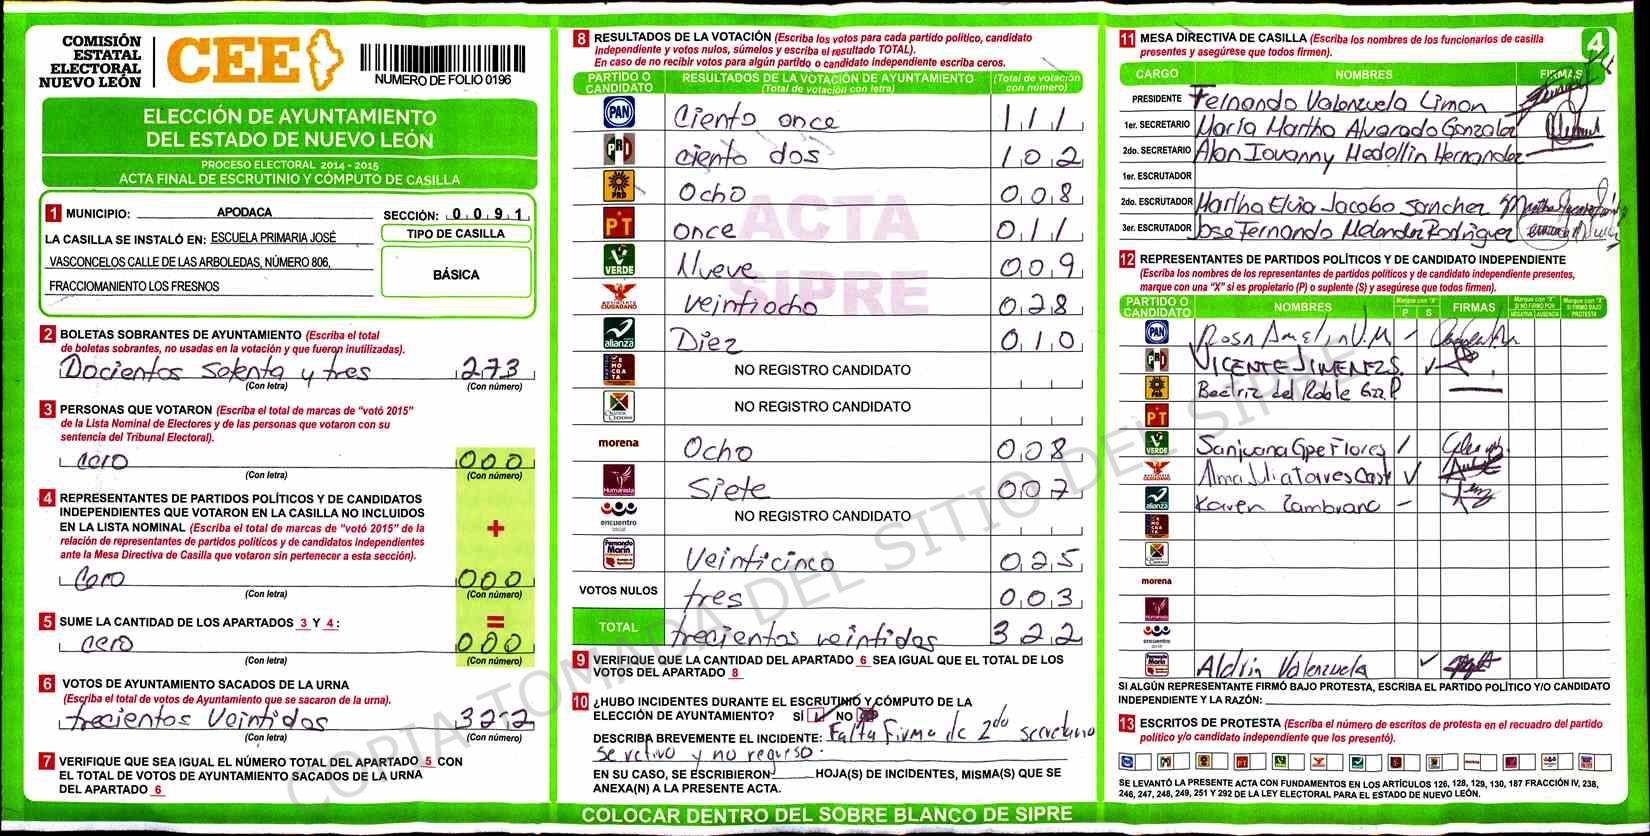 COMISIÓN
ESTATAL
ELECTORAL
NUEVO LEÓN
CEE
NUMERO DE FOLIO 0196
ELECCIÓN DE AYUNTAMIENTO
DEL ESTADO DE NUEVO LEÓN
PROCESO ELECTORAL 2014 - 2015
ACTA FINAL DE ESCRUTINIO Y CÓMPUTO DE CASILLA
1 MUNICIPIO: APODACA SECCIÓN: 0 0 9 1
LA CASILLA SE INSTALÓ EN: ESCUELA PRIMARIA JOSÉ
VASCONCELOS CALLE DE LAS ARBOLEDAS, NÚMERO 806,
FRACCIOMANIENTO LOS FRESNOS
TIPO DE CASILLA
BÁSICA
2 BOLETAS SOBRANTES DE AYUNTAMIENTO (Escriba el total
de boletas sobrantes, no usadas en la votación y que fueron inutilizadas).
Docientos Setenta y tres 273
(Con letra) (Con número)
3 PERSONAS QUE VOTARON (Escriba el total de marcas de “votó 2015”
de la Lista Nominal de Electores y de las personas que votaron con su
sentencia del Tribunal Electoral).
cero 000
(Con letra) (Con número)
4 REPRESENTANTES DE PARTIDOS POLÍTICOS Y DE CANDIDATOS
INDEPENDIENTES QUE VOTARON EN LA CASILLA NO INCLUIDOS
EN LA LISTA NOMINAL (Escriba el total de marcas de “votó 2015” de la
relación de representantes de partidos políticos y de candidatos independientes
ante la Mesa Directiva de Casilla que votaron sin pertenecer a esta sección).
+
Cero 000
(Con letra) (Con número)
5 SUME LA CANTIDAD DE LOS APARTADOS 3 Y 4: =
cero 000
(Con letra) (Con número)
6 VOTOS DE AYUNTAMIENTO SACADOS DE LA URNA
(Escriba el total de votos de Ayuntamiento que se sacaron de la urna).
trecientos Veintidos 322
(Con letra) (Con número)
7 VERIFIQUE QUE SEA IGUAL EL NÚMERO TOTAL DEL APARTADO 5 CON
EL TOTAL DE VOTOS DE AYUNTAMIENTO SACADOS DE LA URNA
DEL APARTADO 6
8 RESULTADOS DE LA VOTACIÓN (Escriba los votos para cada partido político, candidato
independiente y votos nulos, súmelos y escriba el resultado TOTAL).
En caso de no recibir votos para algún partido o candidato independiente escriba ceros.
PARTIDO O CANDIDATO RESULTADOS DE LA VOTACIÓN DE AYUNTAMIENTO (Total de votación con letra) (Total de votación con número)
PAN Ciento once 1 1 1
PRI ciento dos 1 0 2
PRD Ocho 0 0 8
PT once 0 1 1
VERDE Nueve 0 0 9
MOVIMIENTO CIUDADANO veintiocho 0 2 8
alianza Diez 0 1 0
NO REGISTRO CANDIDATO
NO REGISTRO CANDIDATO
morena Ocho 0 0 8
Humanista Siete 0 0 7
encuentro social NO REGISTRO CANDIDATO
Fernando Marín Veinticinco 0 2 5
VOTOS NULOS tres 0 0 3
TOTAL trecientos veintidos 3 2 2
ACTA
SIPRE
9 VERIFIQUE QUE LA CANTIDAD DEL APARTADO 6 SEA IGUAL QUE EL TOTAL DE LOS
VOTOS DEL APARTADO 8
10 ¿HUBO INCIDENTES DURANTE EL ESCRUTINIO Y CÓMPUTO DE LA
ELECCIÓN DE AYUNTAMIENTO? SÍ NO
DESCRIBA BREVEMENTE EL INCIDENTE: Falta Firma de 2do secretario
Se retivo y no regreso.
EN SU CASO, SE ESCRIBIERON HOJA(S) DE INCIDENTES, MISMA(S) QUE SE
ANEXA(N) A LA PRESENTE ACTA.
COLOCAR DENTRO DEL SOBRE BLANCO DE SIPRE
11 MESA DIRECTIVA DE CASILLA (Escriba los nombres de los funcionarios de casilla
presentes y asegúrese que todos firmen).
4
CARGO NOMBRES FIRMAS
PRESIDENTE Fernando Valenzuela Limon
1er. SECRETARIO María Martha Alvarado Gonzalez
2do. SECRETARIO Alan Iovanny Medellin Hernandez
1er. ESCRUTADOR
2do. ESCRUTADOR Martha Elvia Jacobo Sanchez
3er. ESCRUTADOR Jose Fernando Melendez Rodriguez
12 REPRESENTANTES DE PARTIDOS POLÍTICOS Y DE CANDIDATO INDEPENDIENTE
(Escriba los nombres de los representantes de partidos políticos y de candidato independiente presentes,
marque con una “X” si es propietario (P) o suplente (S) y asegúrese que todos firmen).
PARTIDO O CANDIDATO NOMBRES Marque con “X” P S FIRMAS Marque con “X” SI NO FIRMÓ POR NEGATIVA AUSENCIA Marque con “X” SI FIRMÓ BAJO PROTESTA
PAN Rosa Amelia V.M
PRI VICENTE JIMENEZ S.
PRD Beatriz del Roble Gzz P.
PT
VERDE Sanjuana Gpe Flores
Alma Julia Torres Cast
alianza Karen Zambrano
morena
encuentro social
Fernando Marín Aldrin Valenzuela
SI ALGÚN REPRESENTANTE FIRMÓ BAJO PROTESTA, ESCRIBA EL PARTIDO POLÍTICO Y/O CANDIDATO
INDEPENDIENTE Y LA RAZÓN:
13 ESCRITOS DE PROTESTA (Escriba el número de escritos de protesta en el recuadro del partido
político y/o candidato independiente que los presentó).
SE LEVANTÓ LA PRESENTE ACTA CON FUNDAMENTOS EN LOS ARTÍCULOS 126, 128, 129, 130, 187 FRACCIÓN IV, 238,
246, 247, 248, 249, 251 Y 292 DE LA LEY ELECTORAL PARA EL ESTADO DE NUEVO LEÓN.
COPIA TOMADA DEL SITIO DEL SIPRE